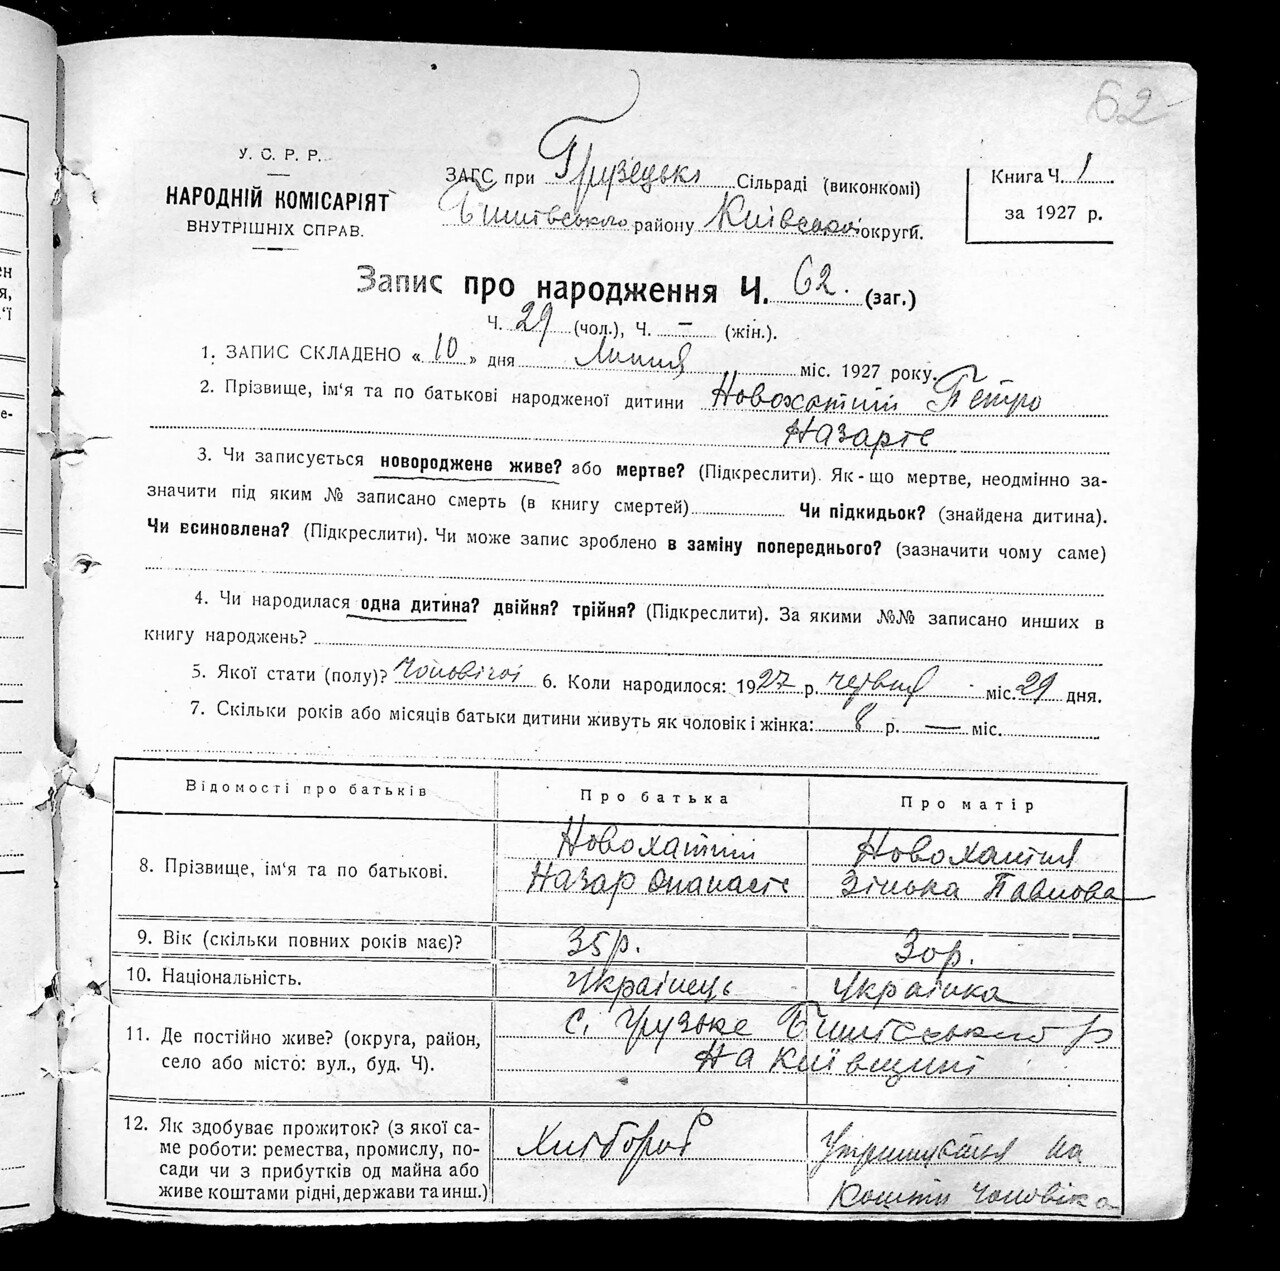 62
У. С. Р. Р.
НАРОДНІЙ КОМІСАРІЯТ
ВНУТРІШНІХ СПРАВ.
ЗАГС при Грузецькі Сільраді (виконкомі)
Бишівського району Київської округи.
Книга Ч. 1
за 1927 р.
Запис про народження Ч. 62. (заг.)
Ч. 29 (чол.), Ч. — (жін.).
1. ЗАПИС СКЛАДЕНО « 10 » дня Липня міс. 1927 року.
2. Прізвище, ім‘я та по батькові народженої дитини Новохатній Петро
Назарів
3. Чи записується новороджене живе? або мертве? (Підкреслити). Як-що мертве, неодмінно за-
значити під яким № записано смерть (в книгу смертей) Чи підкидьок? (знайдена дитина).
Чи всиновлена? (Підкреслити). Чи може запис зроблено в заміну попереднього? (зазначити чому саме)
4. Чи народилася одна дитина? двійня? трійня? (Підкреслити). За якими №№ записано инших в
книгу народжень?
5. Якої стати (полу)? Чоловічої 6. Коли народилося: 1927 р. червня міс. 29 дня.
7. Скільки років або місяців батьки дитини живуть як чоловік і жінка: 8 р. — міс.
Відомості про батьків
Про батька
Про матір
8. Прізвище, ім‘я та по батькові.
Новохатній
Назар Опанасів
Новохатня
Зінька Павлова
9. Вік (скільки повних років має)?
35 р.
30 р.
10. Національність.
Українець
Українка
11. Де постійно живе? (округа, район,
село або місто: вул., буд. Ч).
с. Грузьке Бишівського р
на Київщині
12. Як здобуває прожиток? (з якої са-
ме роботи: ремества, промислу, по-
сади чи з прибутків од майна або
живе коштами рідні, держави та инш.)
Хлібороб
Утримується на
кошти чоловіка